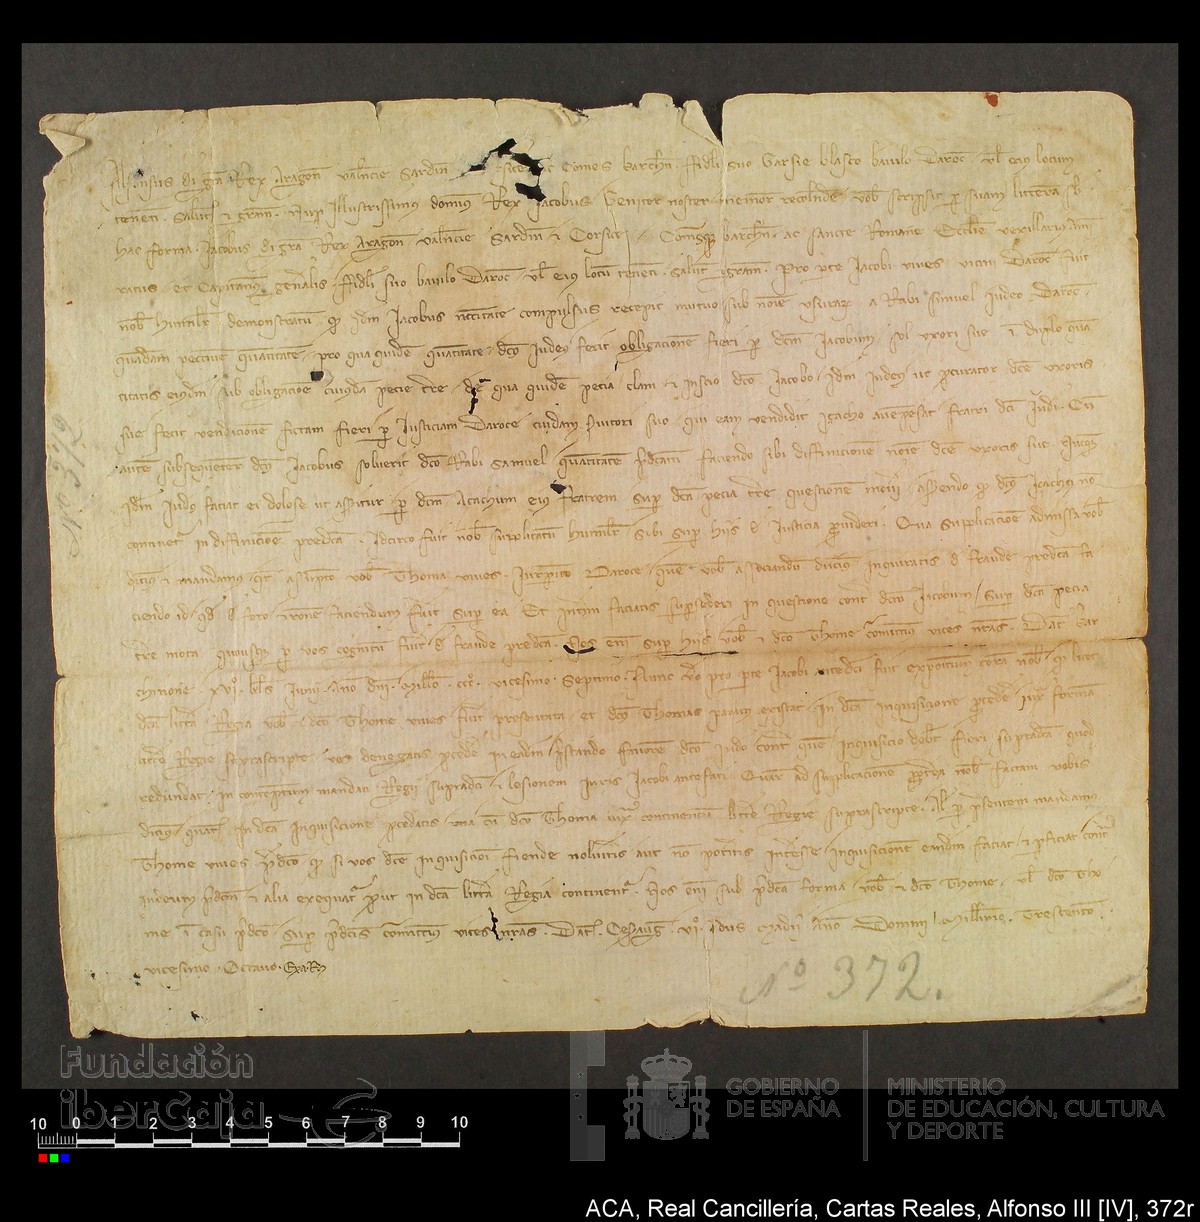 Alfonsus di gra Rex Aragon Valencie Sardin Comes barchn fideli suo Garsie blasco baiulo Daroce vel eius locum
tenenti Salutem et gram Nup Illustrissimus domnus Rex Jacobus Genitor noster memor recolende vob scripsit p suam litteram sb
hac forma Jacobus di gra Rex Aragon Valencie Sardin et Corsice Comesq barchn ac sancte Romane Ecclie vexillarius Am
ratus et Capitaneus gnalis fideli suo baiulo Daroce vel eius locum tenenti Salut et gram Pro pte Jacobi vives vicini Daroce fuit
nob humilr demonstratum q idm Jacobus necitate compulsus recepit mutuo sub noie usurarum a Rabi Simuel Judeo Daroce
quadam peccunie quantitate pro qua quide quantitate dcus Judeus fecit obligacione fieri p dcm Jacobum uxori sue i duplo quan
titatis eiusdm sub obligacione cuiusdam pecie tre de qua quide pecia clam et inscio dco Jacobo idm Judeus ut pcurator dce uxoris
sue fecit vendicione fictam fieri p Justiciam Daroce cuidam suo qui eam vendidit fratri dci Judei Cu
autem subsequenter dcus Jacobus solverit dco Rabi Samuel quantitate pdcam faciendo sibi diffinicione noie dce uxoris sue
idm Judeus faciat ei dolose ut asseritur p dcm Acachum eius fratrem sup dca pecia tre questionem moveri asserendo q dcus non
continetur in diffinicione predca Idcirco fuit nob supplicatum humilr sibi sup hiis de Justicia provideri Qua supplicacione admissa vob
dicimus et mandamus qt assumpto vob Thoma vives Jurisperito Daroce quem vob associandum ducimus inquiratis de fraude predca fa
ciendo id qd de foro et racione faciendum fuerit sup ea Et interim faciatis supsederi in questione contra dcm Jacobum sup dca pecia
tre mota quousq p vos cognitum fuerit de fraude predca Nos enim sup hiis vob et dco Thome comittimus vices nras Dat bar
chinone XVI kls Junii Anno dni Millo CCC vicesimo Septimo Nunc vo pro parte Jacobi antedci fuit expositum coram nob q licet
dca littera Regia vob et dco Thome vives fuerit presentata et dcus Thomas paratus existat in dca inquisicione procedere iuxta formam
littere Regie suprascripte vos denegatis procedere in eadem prestando favorem dco iudeo contra quem inquisicio debet fieri supradca quod
redundat in contemptum mandati Regii supradci et lesionem iuris Jacobi antefati Quare ad supplicacionem propterea nob factam vobis
dicimus quatenus in dca inquisicione procedatis una cum dco Thoma iuxta continenciam littere Regie suprascripte Al p presentem mandamus
Thome vives pdco q si vos dce inquisicioni fiende nolueritis aut non poteritis interesse inquisicionem eandem faciat et pficiat contra
iudeum pdcum et alia exequatur prout in dca littera Regia continetur Nos enim sub pdca forma vob et dco Thome vel dco Tho
me i casu pdco sup pdcis comittimus vices nras Dat Cesaraug VI Idus Madii Anno Domini Millesimo Trescentesimo
vicesimo Octavo
Nº 372.
Nº 372
Fundación
iberCaja
GOBIERNO
DE ESPAÑA
MINISTERIO
DE EDUCACIÓN, CULTURA
Y DEPORTE
10 0 1 2 3 4 5 6 7 8 9 10
ACA, Real Cancillería, Cartas Reales, Alfonso III [IV], 372r